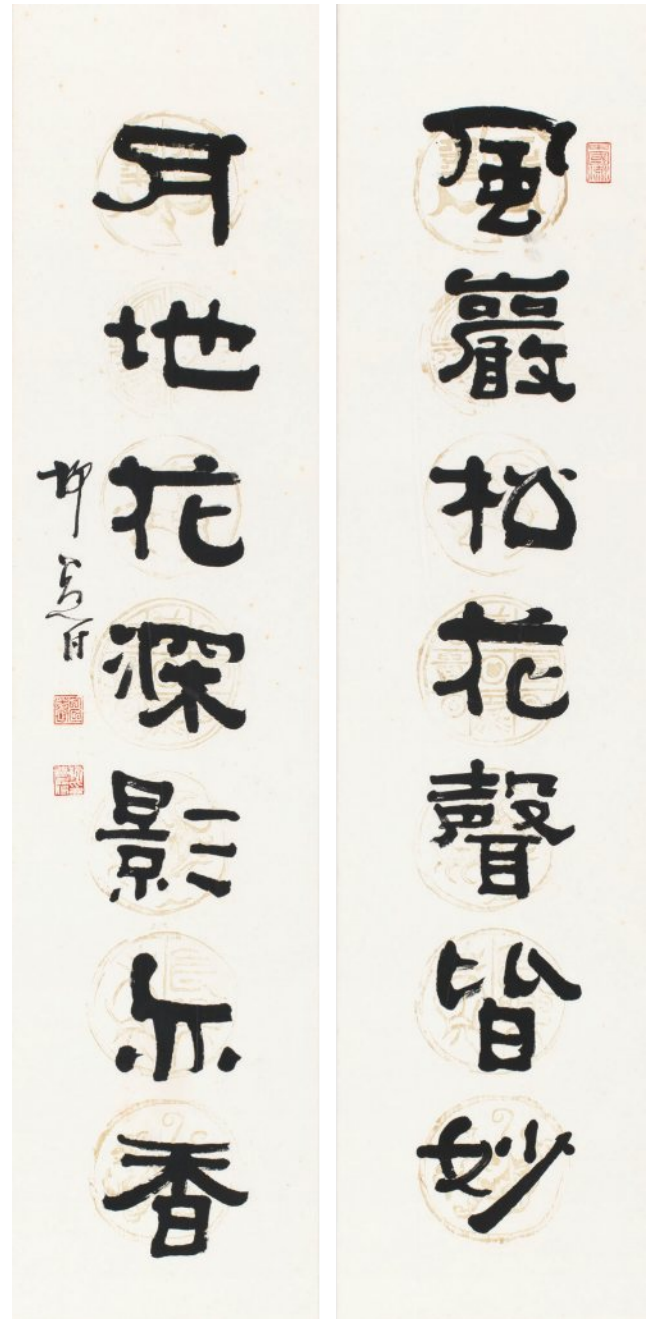 風巖松花聲皆妙
月地花深影亦香